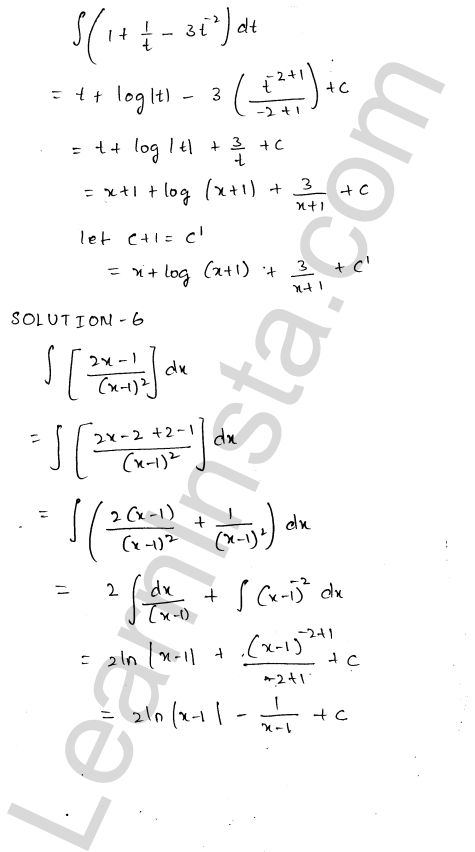 ∫(1 + 1/t - 3t⁻²) dt
= t + log|t| - 3 (t⁻²⁺¹/-2+1) + c
= t + log|t| + 3/t + c
= x+1 + log (x+1) + 3/x+1 + c
let c+1 = c'
= x + log (x+1) + 3/x+1 + c'
SOLUTION - 6
∫ [2x-1/(x-1)²] dx
= ∫ [2x-2+2-1/(x-1)²] dx
= ∫ (2(x-1)/(x-1)² + 1/(x-1)²) dx
= 2 ∫ dx/(x-1) + ∫ (x-1)⁻² dx
= 2ln |x-1| + (x-1)⁻²⁺¹/-2+1 + c
= 2ln |x-1| - 1/x-1 + c
LearnInsta.com